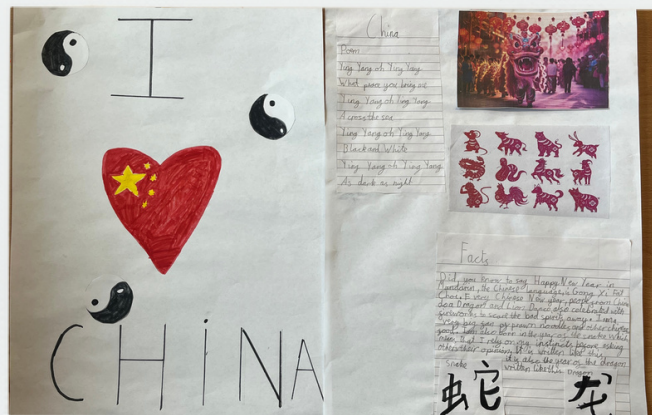 I
CHiNA
China
Poem
Ying Yang oh Ying Yang
What peace you bring me
Ying Yang oh Ying Yang
Across the sea
Ying Yang oh Ying Yang
Black and White
Ying Yang oh Ying Yang
As dark as night
Facts
Did you know to say Happy New Year in
Mandarin, the Chinese language, is Gong Xi Fat
Choi. Every Chinese New year, people from China
do a Dragon and Lion Dance also celebrated with
fireworks to scare the bad spirits away. I am
very big fan of prawn noodles and other
food. I am also born in the year of the snake which
that I rely on my instincts before asking
others their opinion. It is written like this
Snake
It is also the year of the dragon
written like this Dragon
蛇
龙